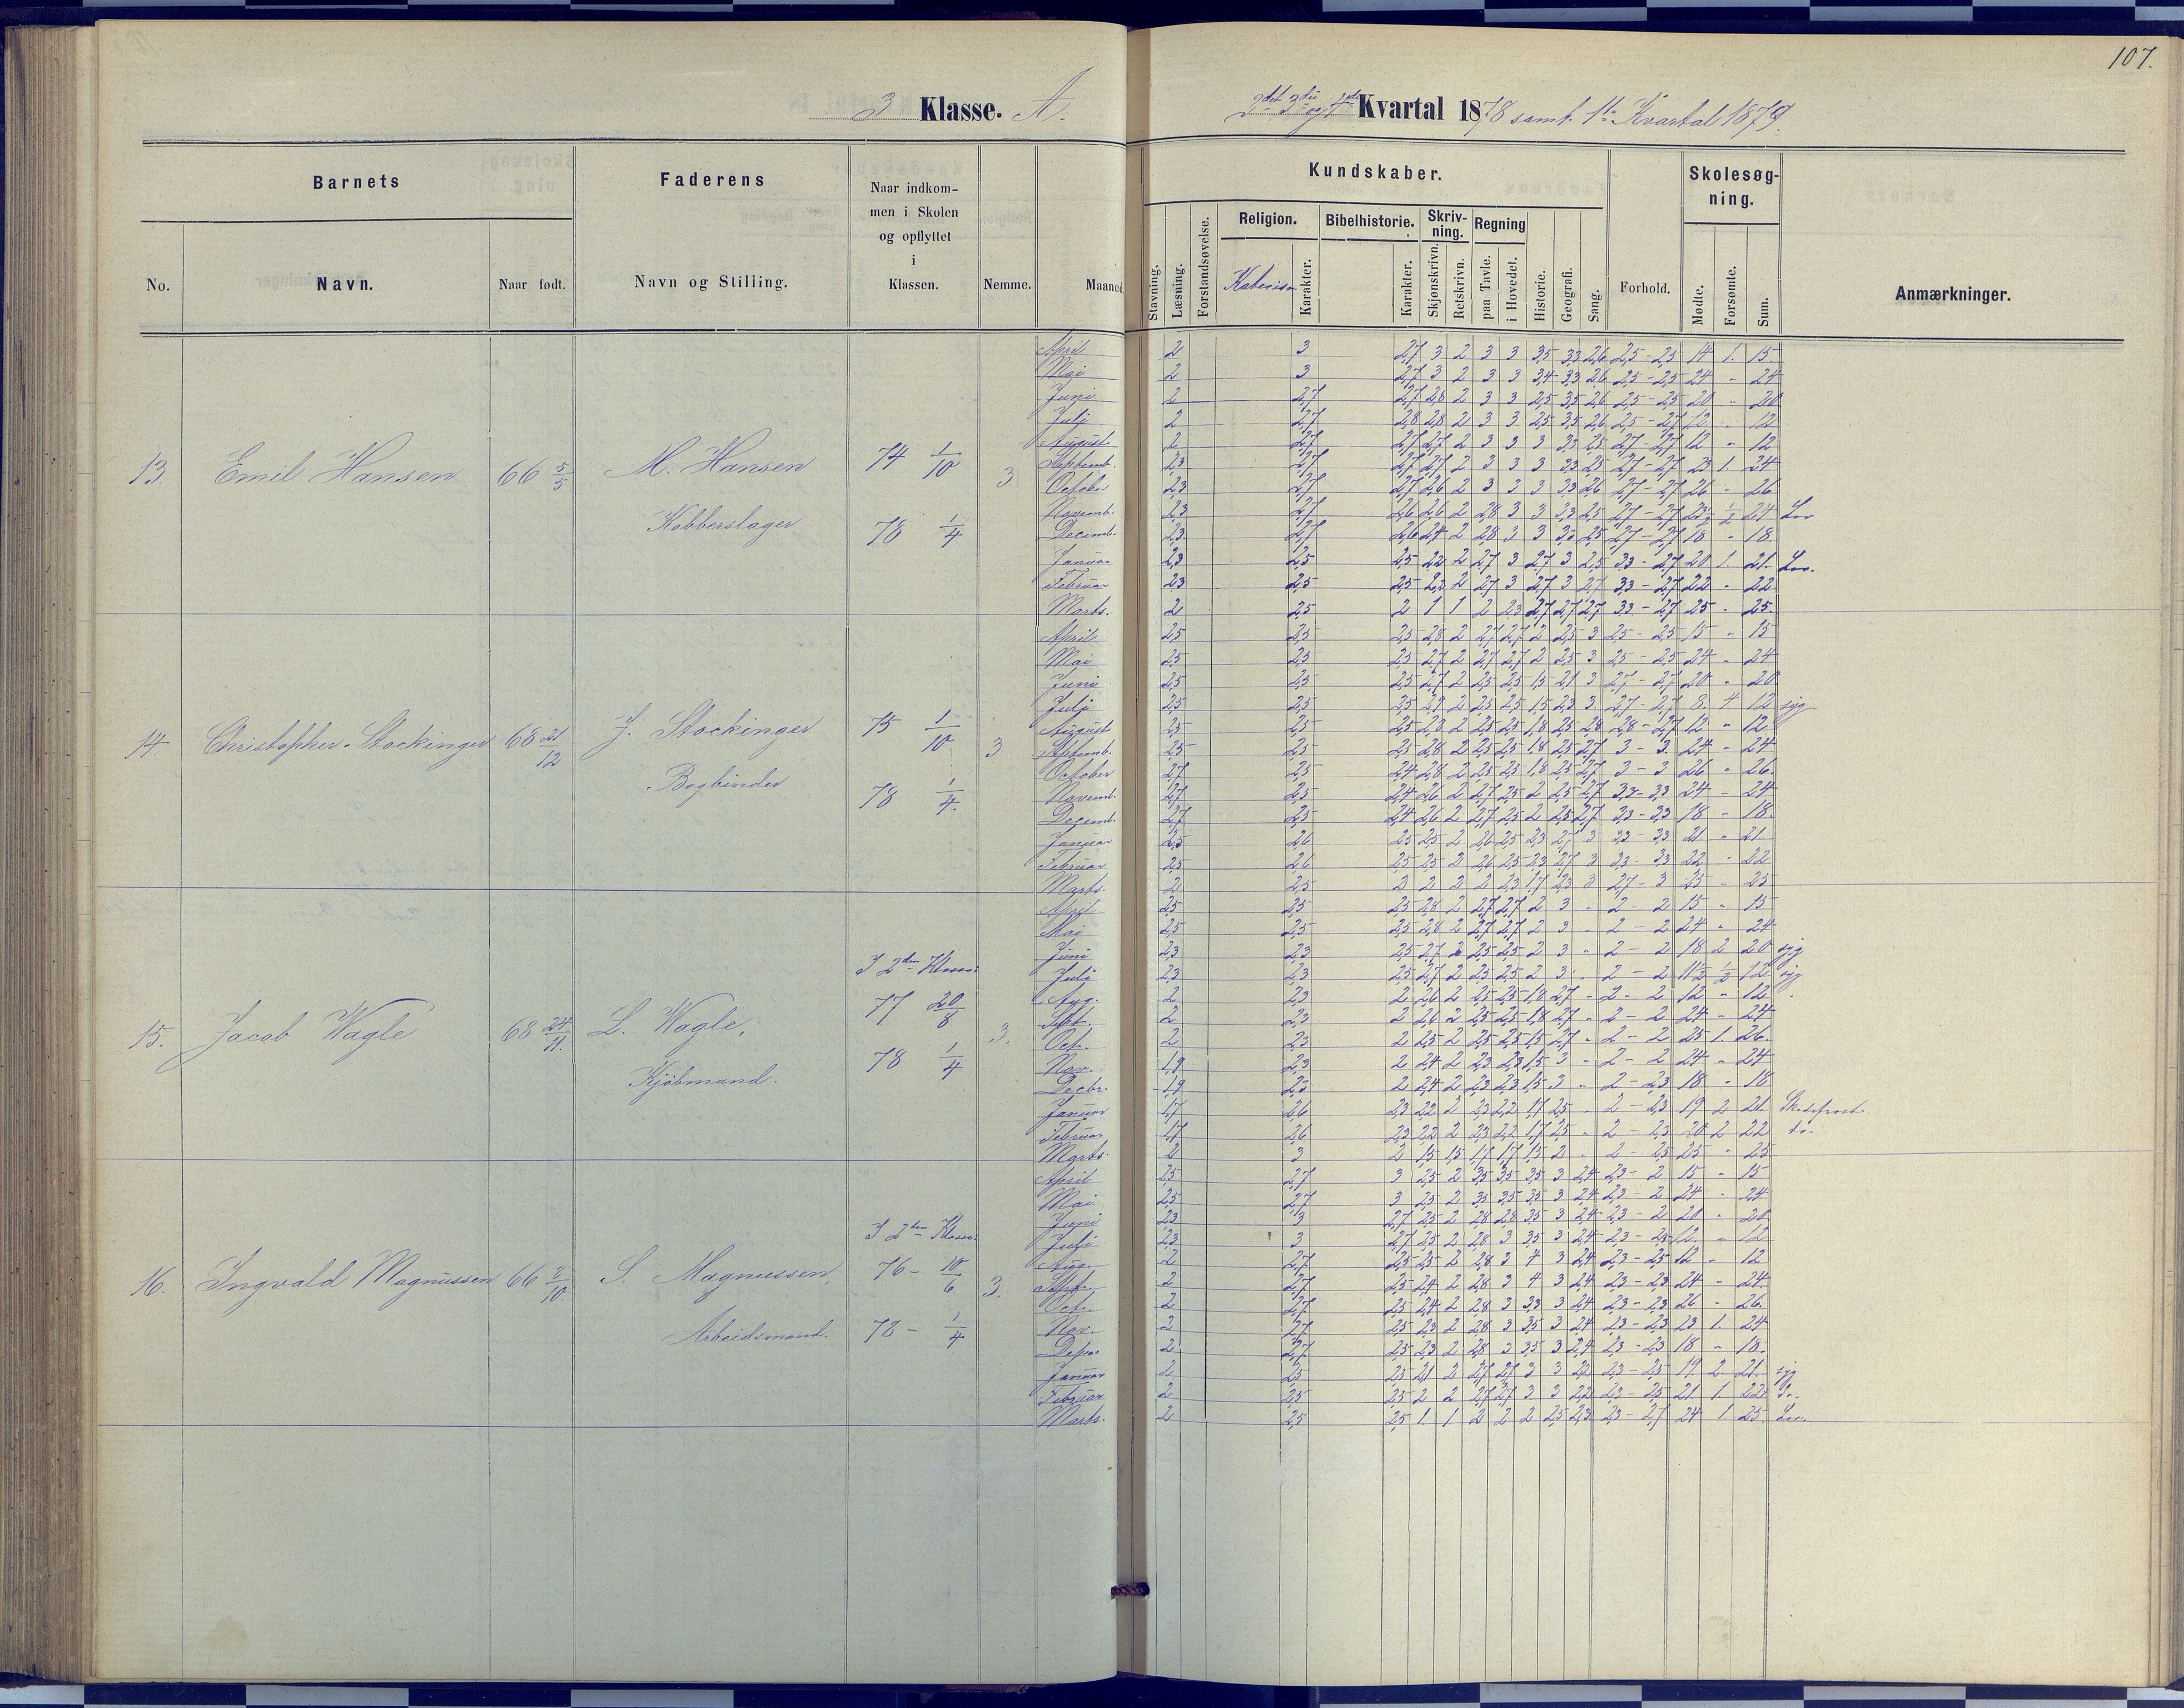 107.
3 Klasse. A.
2det 3die og 4de Kvartal 1878 samt 1ste Kvartal 1879.
Barnets
Faderens
Naar indkom-
men i Skolen
og opflyttet
i
Klassen.
No.
Navn.
Naar født.
Navn og Stilling.
Nemme.
Maaned.
Kundskaber.
Skolesøg-
ning.
Stavning.
Læsning.
Forstandsøvelse.
Religion.
Bibelhistorie.
Skriv-
ning.
Regning
Karakter.
Karakter.
Skjønskrivn.
Retskrivn.
paa Tavle.
i Hovedet.
Historie.
Geografi.
Sang.
Forhold.
Mødte.
Forsømte.
Sum.
Anmærkninger.
13 Emil Hansen 66 5/5 M. Hansen 74 1/10 3.
Kobberslager 78 1/4
April 2 3 2,7 3 2 3 3 3,5 3,3 2,6 2,5 - 2,5 14 1. 15.
Mai 2 3 2,7 3 2 3 3 3,4 3,3 2,6 2,5 - 2,5 24 " 24
Juni 2 2,7 2,7 2,8 2 3 3 2,5 3,5 2,6 2,5 - 2,5 20 " 20
Juli 2 2,7 2,8 2,8 2 3 3 2,5 3,5 2,6 2,5 - 2,7 12 " 12
August 2 2,7 2,7 2,7 2 3 3 3 3,3 2,5 2,7 - 2,7 12 " 12
Septemb. 2,3 2,7 2,7 2,7 2 3 3 3 3,3 2,5 2,7 - 2,7 23 1. 24
October 2,3 2,7 2,7 2,6 2 3 3 3 3,3 2,6 2,7 - 2,7 26 " 26
Novemb. 2,3 2,7 2,6 2,6 2 2,8 3 3 3,3 2,5 2,7 - 2,7 23 1/2 1/2 24
Decemb. 2,3 2,7 2,6 2,4 2 2,8 3 3 3,3 2,5 2,7 - 2,7 18 " 18.
Januar 2,3 2,5 2,5 2,2 2 2,7 3 2,7 3 2,5 3,3 - 2,7 20 1. 21.
Februar 2,3 2,5 2,5 2,2 2 2,7 3 2,7 3 2,7 3,3 - 2,7 22 " 22
Marts. 2 2,5 2 1 1 2 2,3 2,7 2,7 2,7 3,3 - 2,7 25 " 25.
14 Christopher Stockinger 68 21/12 J. Stockinger 75 1/10 3
Bogbinder 78 1/4.
April 2,5 2,5 2,5 2,8 2 2,7 2,7 2 2,5 3 2,5 - 2,5 15 " 15
Mai 2,5 2,5 2,5 2,7 2 2,7 2,7 2 2,5 3 2,5 - 2,5 24 " 24
Juni 2,5 2,5 2,5 2,7 2 2,5 2,5 1,5 2,1 3 2,7 - 2,7 20 " 20
Juli 2,5 2,5 2,5 2,7 2 2,5 2,5 1,5 2,3 3 2,7 - 2,7 8. 4 12 syg
August 2,5 2,5 2,5 2,8 2 2,5 2,5 1,8 2,5 2,8 2,8 - 2,7 12 " 12
Septemb. 2,5 2,5 2,5 2,8 2 2,5 2,5 1,8 2,5 2,7 3 - 3 24 " 24
October 2,7 2,5 2,4 2,8 2 2,5 2,5 1,8 2,5 2,7 3 - 3 26 " 26.
Novemb. 2,7 2,5 2,4 2,6 2 2,7 2,5 2 2,5 2,7 3,3 - 3,3 24 " 24
Decemb. 2,7 2,5 2,4 2,6 2 2,7 2,5 2 2,5 2,7 3,3 - 3,3 18 " 18.
Januar 2,5 2,6 2,5 2,5 2 2,6 2,5 2,3 2,7 3 3,3 - 3,3 21 " 21
Februar 2,5 2,6 2,5 2,5 2 2,6 2,5 2,3 2,7 3 3,3 - 3,3 22 " 22
Marts 2 2,5 3 2 2 2 2,3 1,7 2,3 3 2,7 - 3 25 " 25
15. Jacob Wagle 68 24/11. L. Wagle, 3.
Kjøbmand.
I 2den Klasse:
77 20/8
78 1/4
April 2,5 2,5 2,5 2,8 2 2,7 2,7 2 3 " 2 - 2 15 " 15
Mai 2,5 2,5 2,5 2,8 2 2,7 2,7 2 3 " 2 - 2 24 " 24
Juni 2,3 2,3 2,5 2,7 2 2,5 2,5 2 3 " 2 - 2 18 2 20 syg
Juli 2,3 2,3 2,5 2,7 2 2,5 2,5 2 3 " 2 - 2 11 1/2 1/2 12 syg
Aug. 2 2,3 2 2,6 2 2,5 2,5 1,8 2,7 " 2 - 2 12 " 12
Sept. 2 2,3 2 2,6 2 2,5 2,5 1,8 2,7 " 2 - 2 24 " 24
Oct. 2 2,3 2 2,5 2 2,5 2,5 1,5 2,7 " 2 - 2 25 1 26.
Nov. 1,9 2,3 2 2,4 2 2,3 2,3 1,5 3 " 2 - 2 24 " 24
Decbr. 1,9 2,3 2 2,4 2 2,3 2,3 1,5 3 " 2 - 2,3 18 " 18
Januar 1,7 2,6 2,3 2,2 2 2,3 2,2 1,7 2,5 " 2 - 2,3 19 2 21
Februar 1,7 2,6 2,3 2,2 2 2,3 2,2 1,7 2,5 " 2 - 2,3 20 2 22 do.
Marts. 2 3 2 1,5 1,5 1,7 1,7 1,5 2 " 2 - 2,5 25 " 25
16. Ingvald Magnussen 66 2/10. S. Magnussen, 3.
Arbeidsmand.
I 2den Klasse:
76 - 10/6
78 - 1/4
April 2,5 2,7 3 2,5 2 3,5 3,5 3,5 3 2,4 2,3 - 2 15 " 15
Mai 2,5 2,7 3 2,5 2 3,5 3,5 3,5 3 2,4 2,3 - 2 24 " 24
Juni 2,3 3 2,7 2,5 2 2,8 2,8 3,5 3 2,4 2,3 - 2 20 " 20
Juli 2,3 3 2,7 2,5 2 2,8 3 3,5 3 2,4 2,3 - 2,5 12. " 12
Aug. 2 2,7 2,5 2,5 2 2,8 3 4 3 2,4 2,3 - 2,5 12 " 12
Sept. 2 2,7 2,5 2,4 2 2,8 3 4 3 2,4 2,3 - 2,3 24 " 24
Oct. 2 2,7 2,5 2,4 2 2,8 3 3,3 3 2,4 2,3 - 2,3 26 " 26.
Nov. 2 2,7 2,5 2,3 2 2,8 3 3,5 3 2,4 2,3 - 2,3 23 1. 24
2 2,7 2,5 2,3 2 2,8 3 3,5 3 2,4 2,3 - 2,3 18 " 18.
Januar 2 2,5 2,5 2,1 2 2,7 2,7 3 3 2,2 2,3 - 2,5 19 2 21. syg
Februar 2 2,5 2,5 2 2 2,7 2,7 3 3 2,2 2,3 - 2,5 21. 1 22
Marts. 2 2,5 2,5 1. 1 2 2 2 2,5 2,3 2,3 - 2,7 24 1. 25.